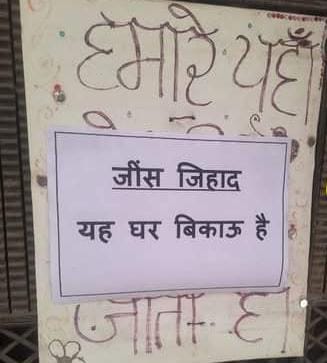 हमारे यहाँ
जींस जिहाद
यह घर बिकाऊ है
जाता है